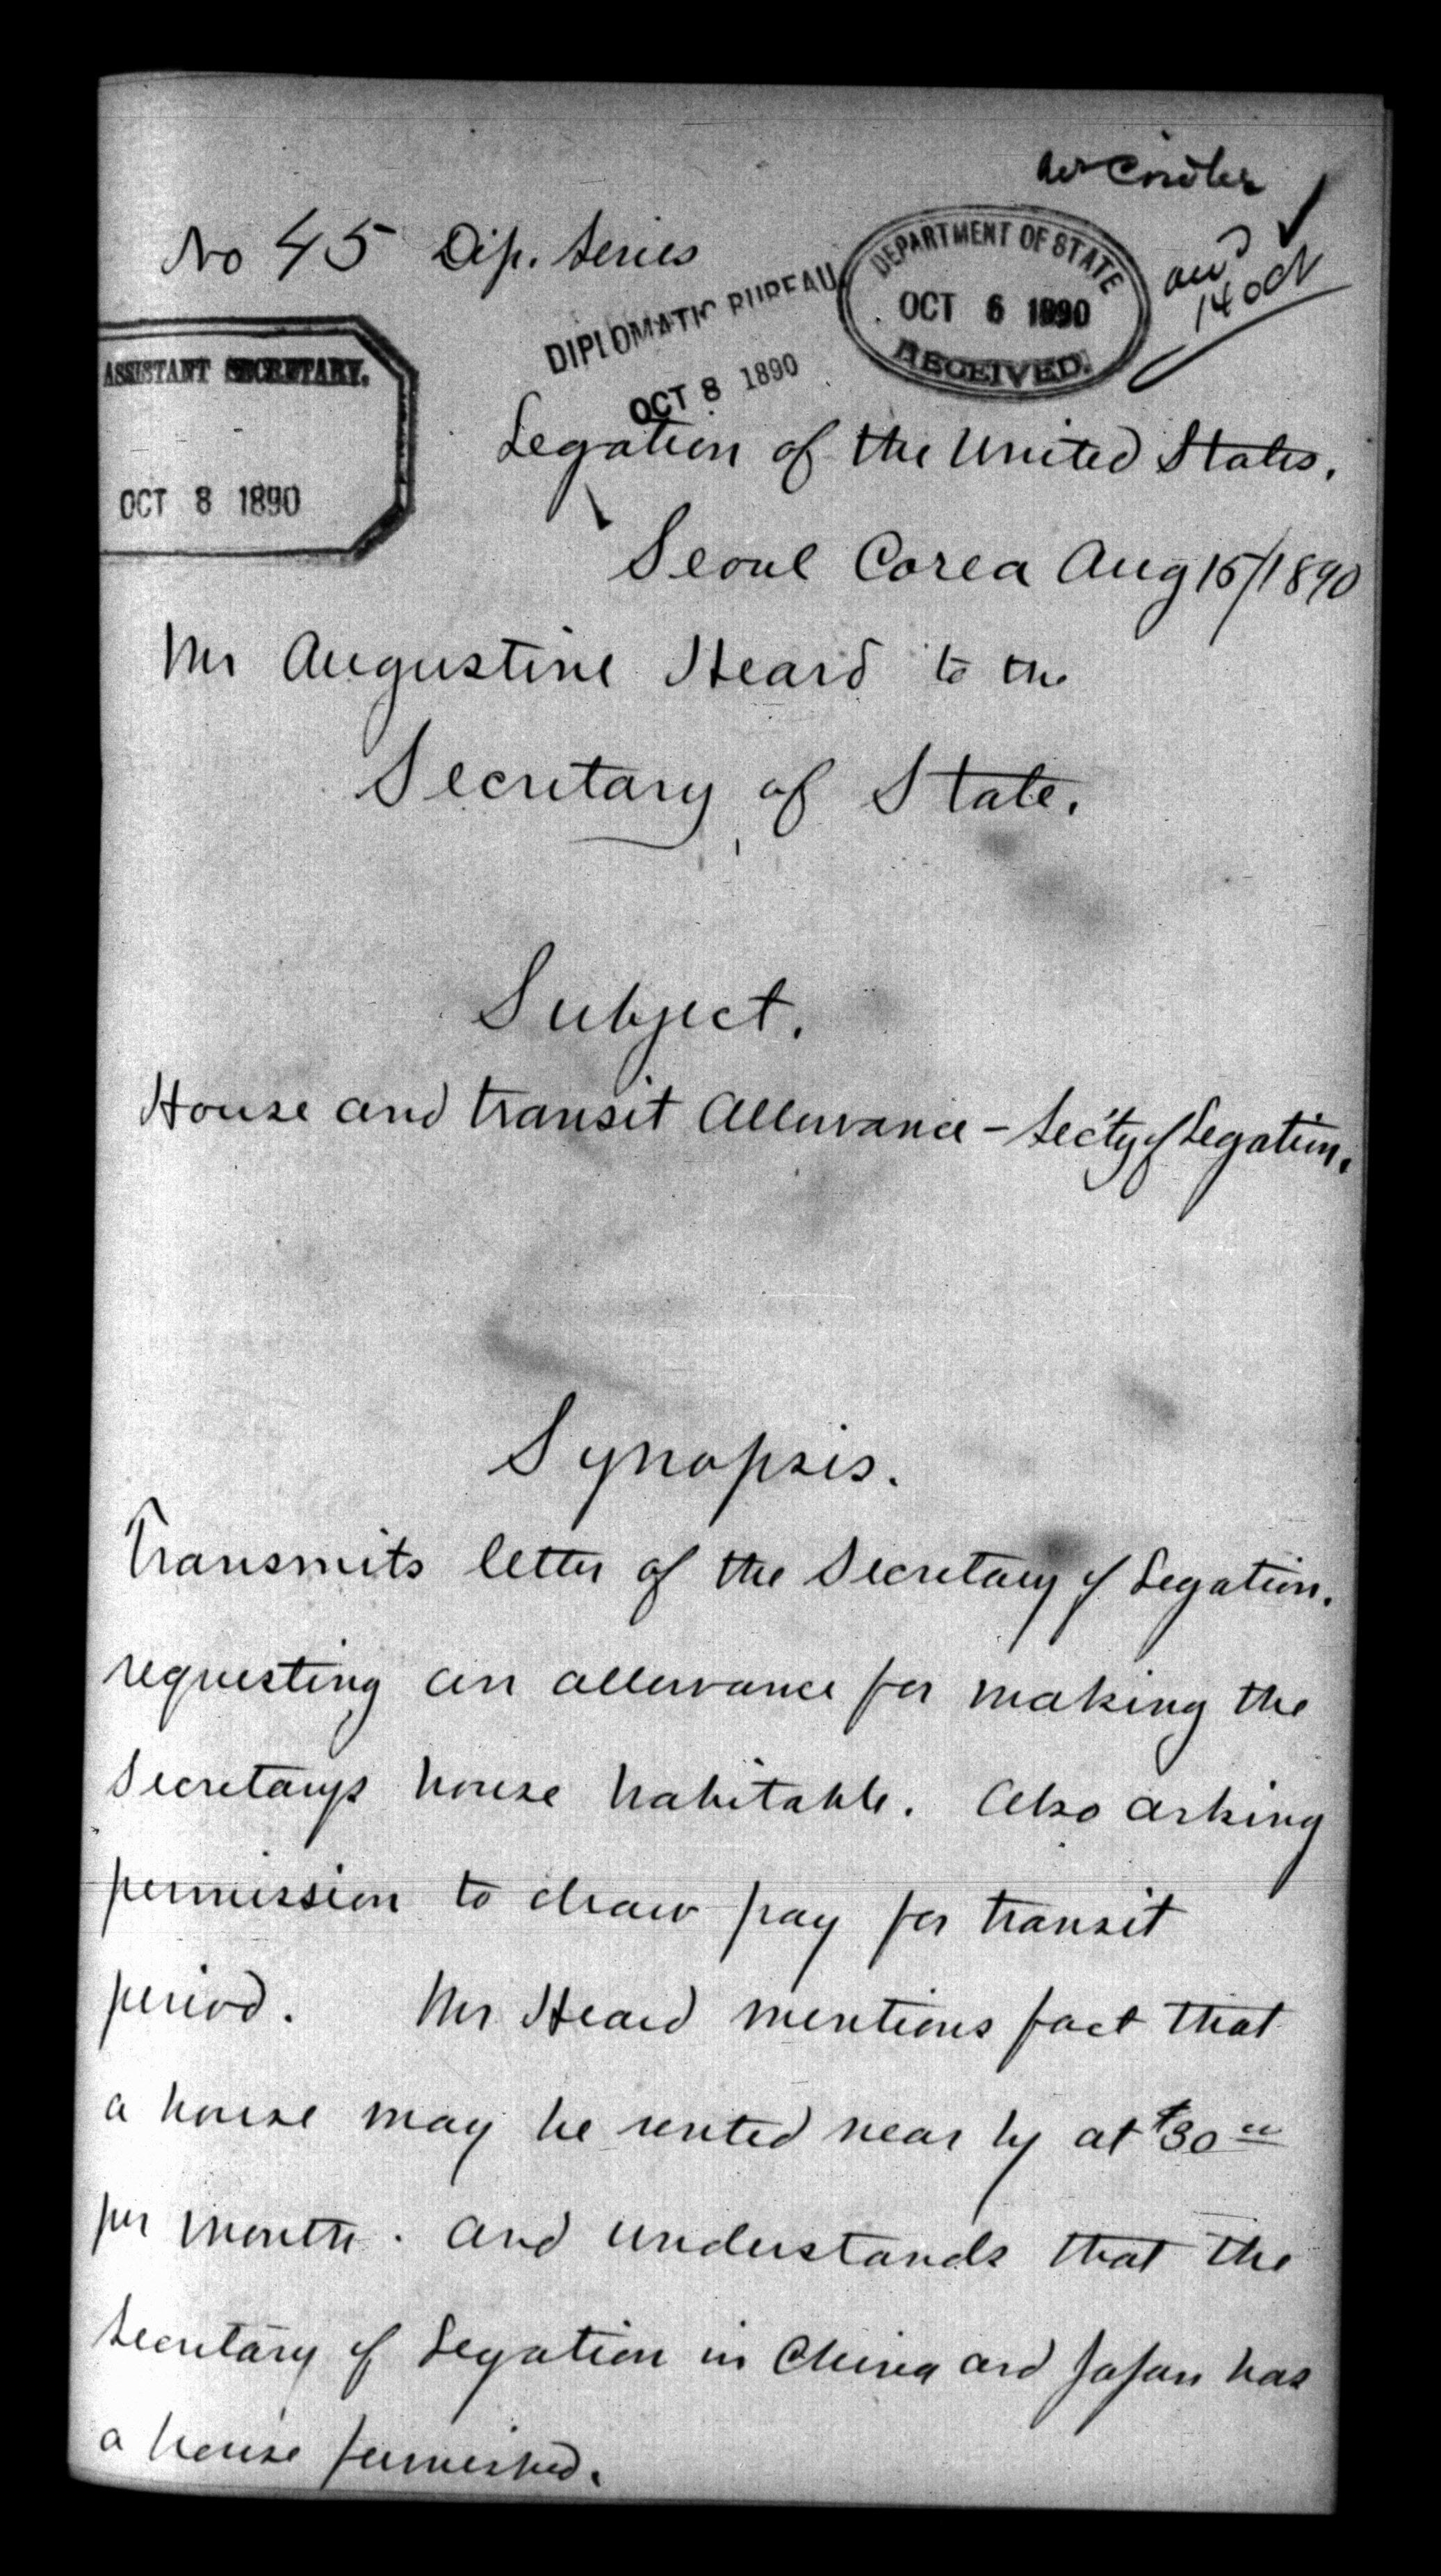 No 45 Dip. Series
DEPARTMENT OF STATE
OCT 6 1890
RECEIVED.
14 Oct
DIPLOMATIC BUREAU
OCT 8 1890
ASSISTANT SECRETARY.
OCT 8 1890
Legation of the United States.
Seoul Corea Aug 15/1890
Mr Augustine Heard to the
Secretary of State.
Subject.
House and transit Allowance - Sec'ty of Legation.
Synopsis.
Transmits letter of the Secretary of Legation.
requesting an allowance for making the
Secretarys house habitable. Also asking
permission to draw pay for transit
period. Mr Heard mentions fact that
a house may be rented near by at $30 00
per month. and understands that the
Secretary of Legation in China and Japan has
a house furnished.